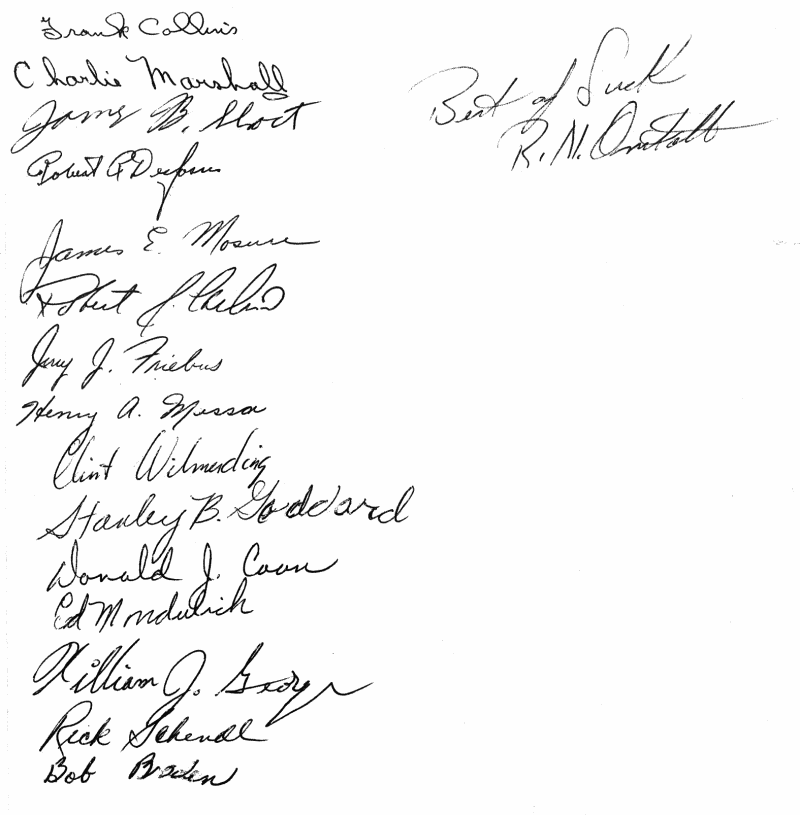 Frank Collins
Charlie Marshall
James B. Short
Robert
James E. Mosure
Robert J.
Jerry J. Friebus
Henry A. Messa
Clint Wilmerding
Stanley B. Goddard
Donald J. Coon
Ed Mondulich
William J. George
Rick Schendl
Bob Braden
Best of Luck
R. N. Omstatt